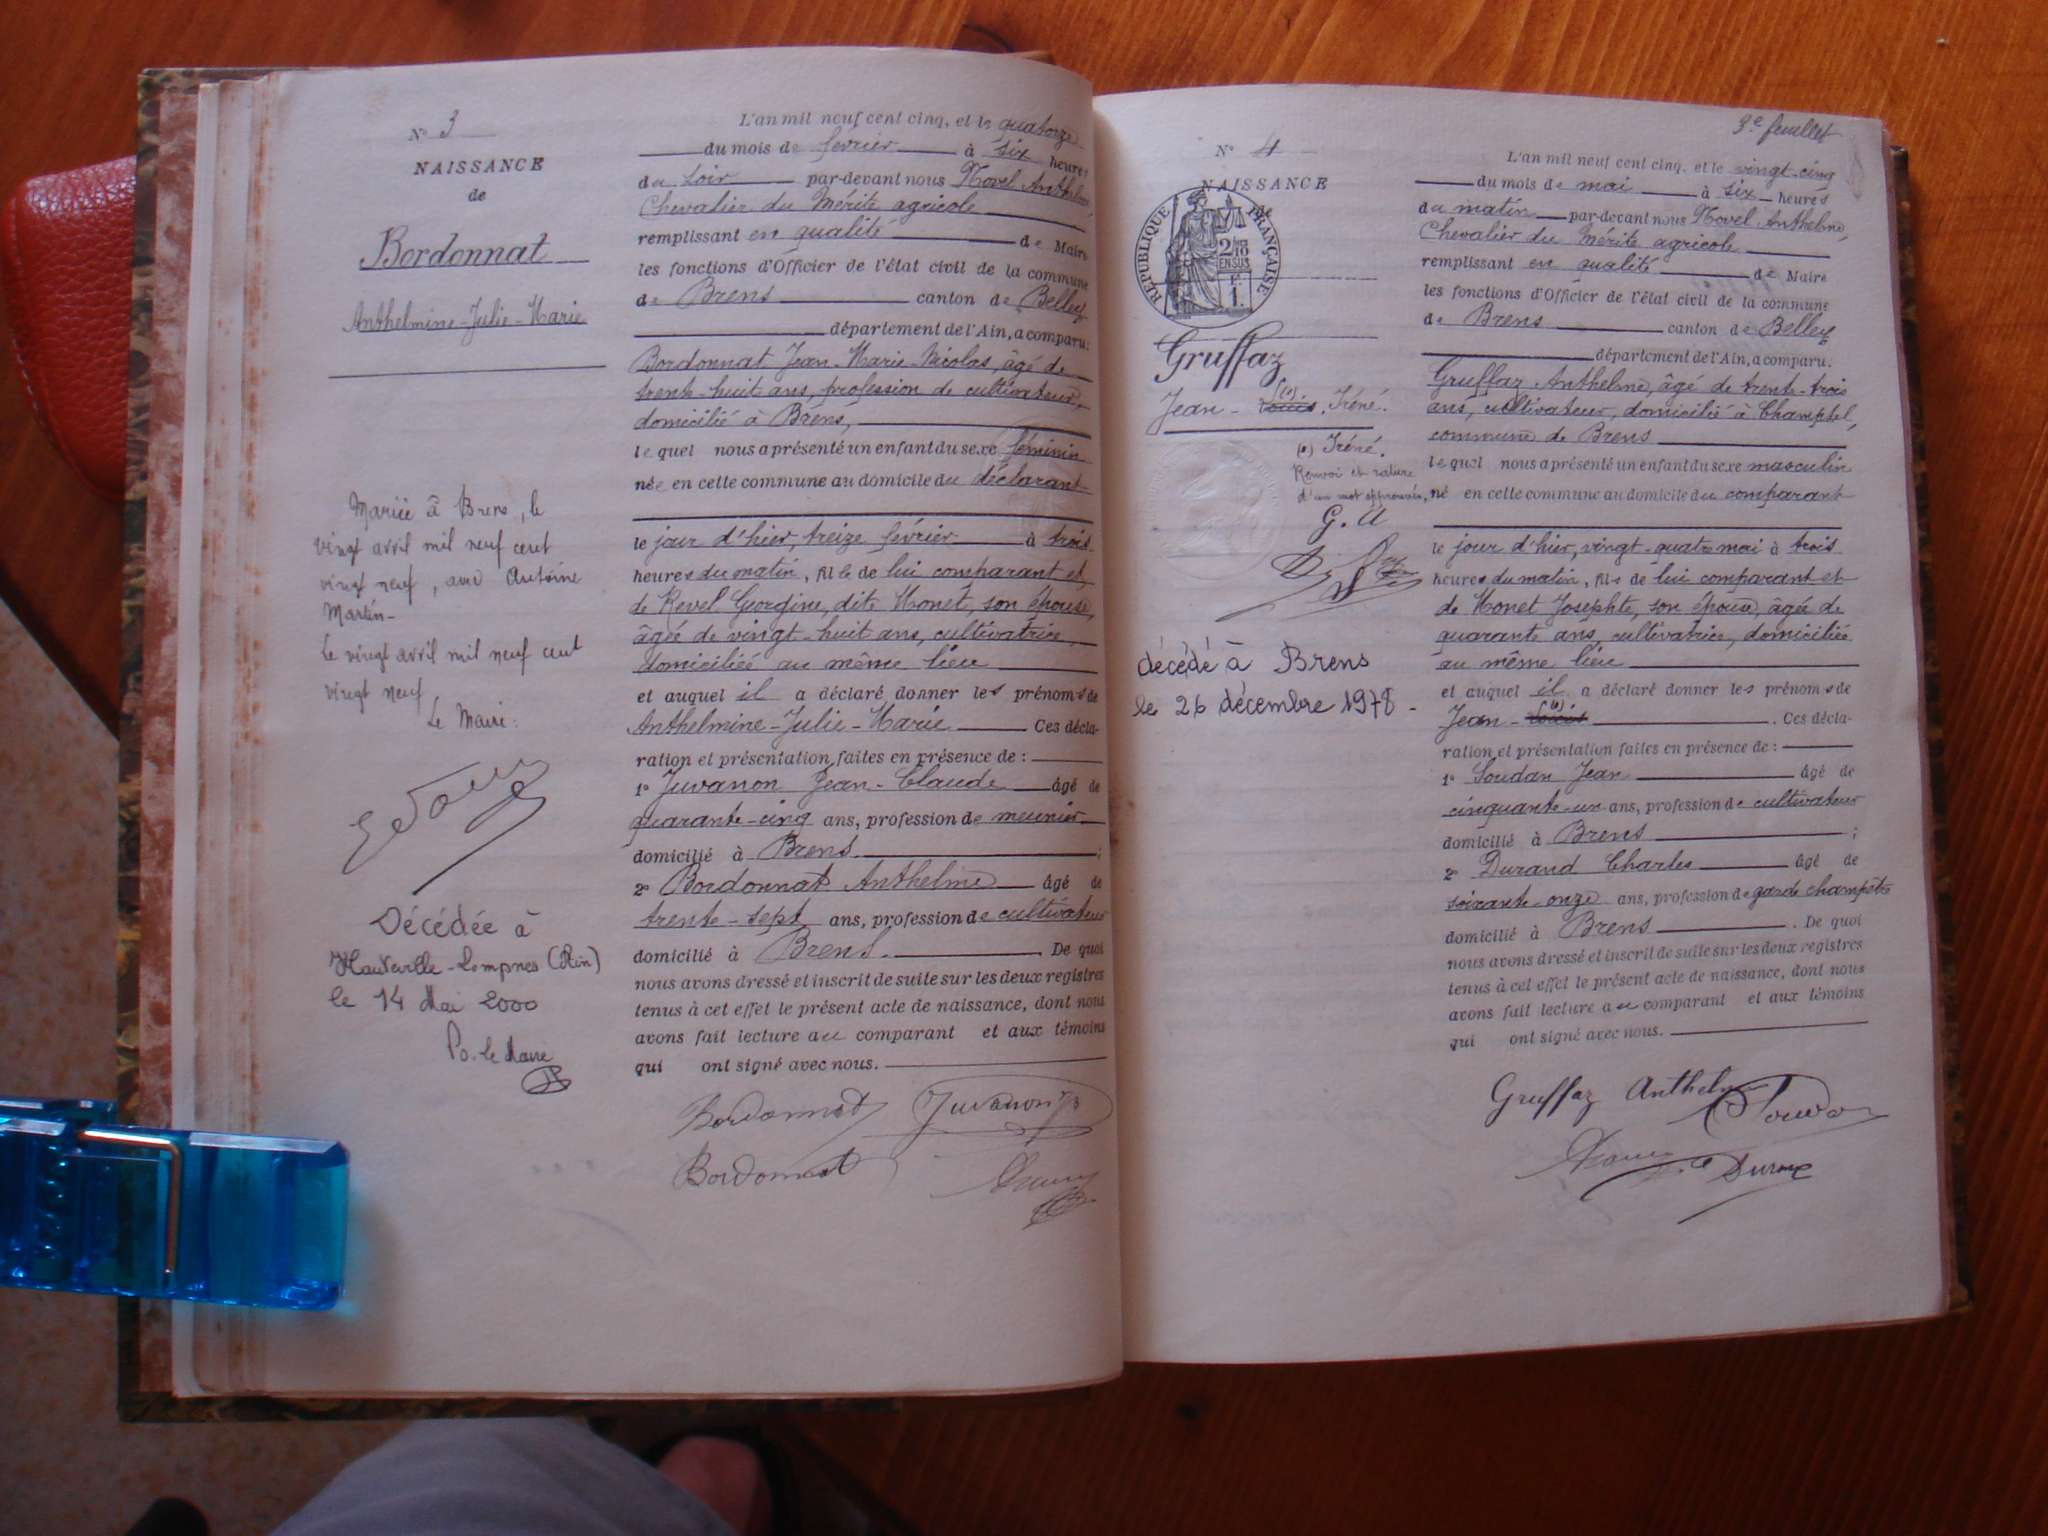 N° 3
NAISSANCE
de
Bordonnat
Anthelmine-Julie-Marie
Mariée à Brens, le
vingt avril mil neuf cent
vingt neuf, avec Antoine
Martin-
Le vingt avril mil neuf cent
vingt neuf
Le Maire:
Décédée à
Hauteville-Lompnes (Ain)
le 14 Mai 2000
Po. le Maire
L'an mil neuf cent cinq, et le quatorze
du mois de fevrier à six heures
du soir par-devant nous Novel Anthelme,
Chevalier du Mérite agricole
remplissant en qualité de Maire
les fonctions d'Officier de l'état civil de la commune
de Brens canton de Belley
département de l'Ain, a comparu:
Bordonnat Jean-Marie-Nicolas, âgé de
trente-huit ans, profession de cultivateur,
domicilié à Brens,
lequel nous a présenté un enfant du sexe féminin
née en cette commune au domicile du déclarant
le jour d'hier, treize février à trois
heures du matin, fille de lui comparant et
de Revel Georgine, dite Monet, son épouse,
âgée de vingt-huit ans, cultivatrice,
domiciliée au même lieu
et auquel il a déclaré donner les prénoms de
Anthelmine-Julie-Marie Ces décla-
ration et présentation faites en présence de:
1° Juvanon Jean-Claude âgé de
quarante-cinq ans, profession de meunier
domicilié à Brens ;
2° Bordonnat Anthelme âgé de
trente-sept ans, profession de cultivateur
domicilié à Brens. De quoi
nous avons dressé et inscrit de suite sur les deux registres
tenus à cet effet le présent acte de naissance, dont nous
avons fait lecture au comparant et aux témoins
qui ont signé avec nous.
Bordonnat Juvanon
Bordonnat
3e feuillet
N° 4
NAISSANCE
RÉPUBLIQUE FRANÇAISE
2/10
EN SUS
1F
Gruffaz
Jean-Louis (a). Iréné.
(a) Iréné.
Renvoi et rature
d'un mot approuvés,
G. A
décédé à Brens
le 26 décembre 1978-
L'an mil neuf cent cinq, et le vingt-cinq
du mois de mai à six heures
du matin par-devant nous Novel Anthelme,
Chevalier du Mérite agricole
remplissant en qualité de Maire
les fonctions d'Officier de l'état civil de la commune
de Brens canton de Belley
département de l'Ain, a comparu:
Gruffaz Anthelme, âgé de trente-trois
ans, cultivateur, domicilié à Champtel,
commune de Brens
lequel nous a présenté un enfant du sexe masculin
né en cette commune au domicile du comparant
le jour d'hier, vingt-quatre mai à trois
heures du matin, fils de lui comparant et
de Monet Josephte, son épouse, âgée de
quarante ans, cultivatrice, domiciliée
au même lieu
et auquel il a déclaré donner les prénoms de
Jean-Louis (a). Ces décla-
ration et présentation faites en présence de:
1° Soudan Jean âgé de
cinquante-un ans, profession de cultivateur
domicilié à Brens ;
2° Durand Charles âgé de
soixante-onze ans, profession de garde champêtre
domicilié à Brens. De quoi
nous avons dressé et inscrit de suite sur les deux registres
tenus à cet effet le présent acte de naissance, dont nous
avons fait lecture au comparant et aux témoins
qui ont signé avec nous.
Gruffaz Anthelme